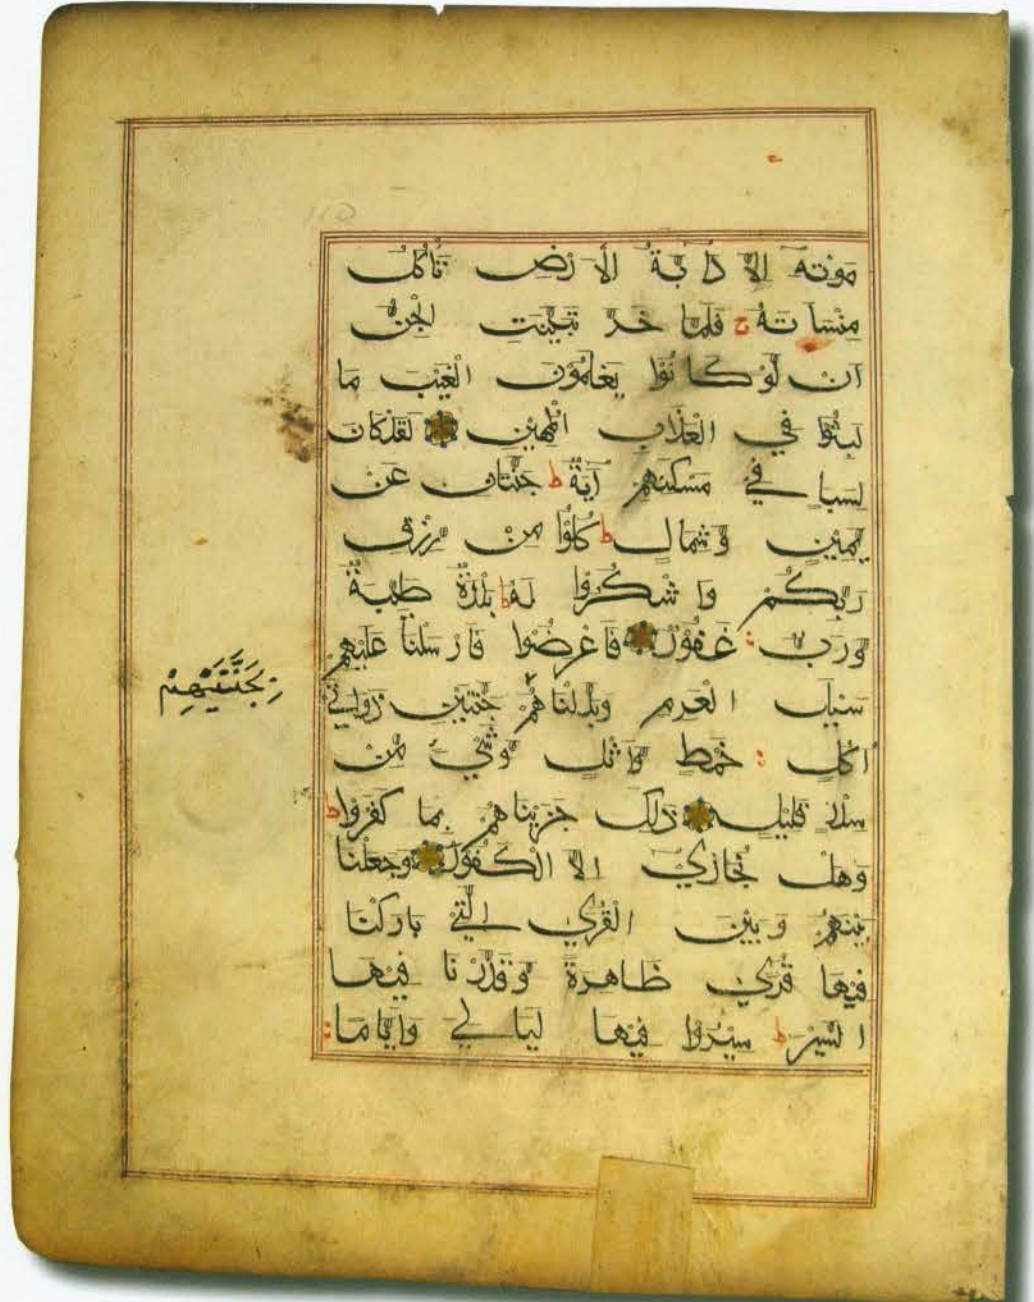 مَوْتِهٖ اِلَّا دَآبَّةُ الْاَرْضِ تَاْكُلُ
مِنْسَاَتَهُ ج فَلَمَّا خَرَّ تَبَيَّنَتِ الْجِنُّ
اَنْ لَّوْ كَانُوْا يَعْلَمُوْنَ الْغَيْبَ مَا
لَبِثُوْا فِي الْعَذَابِ الْمُهِيْنِ لَقَدْ كَانَ
لِسَبَاٍ فِيْ مَسْكَنِهِمْ اٰيَةٌ ط جَنَّتَانِ عَنْ
يَّمِيْنٍ وَّشِمَالٍ ط كُلُوْا مِنْ رِّزْقِ
رَبِّكُمْ وَاشْكُرُوْا لَهٗ ط بَلْدَةٌ طَيِّبَةٌ
وَّرَبٌّ غَفُوْرٌ فَاَعْرَضُوْا فَاَرْسَلْنَا عَلَيْهِمْ
سَيْلَ الْعَرِمِ وَبَدَّلْنَاهُمْ جَنَّتَيْنِ ذَوَاتَيْ
بِجَنَّتَيْهِمْ
اُكُلٍ خَمْطٍ وَّاَثْلٍ وَّشَيْءٍ مِّنْ
سِدْرٍ قَلِيْلٍ ذٰلِكَ جَزَيْنَاهُمْ بِمَا كَفَرُوْا ط
وَهَلْ نُجَازِيْ اِلَّا الْكَفُوْرَ وَجَعَلْنَا
بَيْنَهُمْ وَبَيْنَ الْقُرَي الَّتِيْ بَارَكْنَا
فِيْهَا قُرًي ظَاهِرَةً وَّقَدَّرْنَا فِيْهَا
السَّيْرَ ط سِيْرُوْا فِيْهَا لَيَالِيَ وَاَيَّامًا